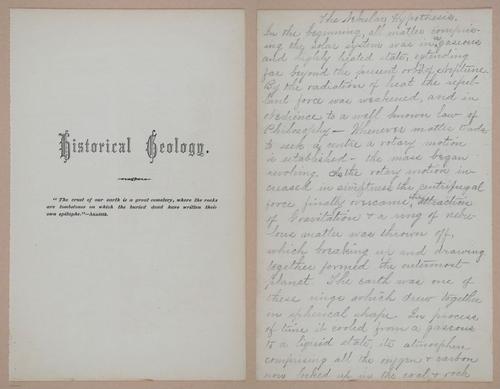 Historical Geology.
"The crust of our earth is a great cemetery, where the rocks
are tombstones on which the buried dead have written their
own epitaphs."—Agassiz.
The Nebular Hypothesis.
In the beginning, all matter compris-
ing the solar system was in a gaseous
and highly heated state, extending
far beyond the present orbit of Neptune.
By the radiation of heat the repel-
lant force was weakened, and in
obedience to a well known law of
Philosophy— Whenever matter tends
to seek a centre a rotary motion
is established— the mass began
revolving. As the rotary motion in-
creased in swiftness the centrifugal
force finally overcame the attraction
of Gravitation & a ring of nebu-
lous matter was thrown off,
which breaking up and drawing
together formed the outermost
planet. The earth was one of
these rings which drew together
in spherical shape. In process
of time it cooled from a gaseous
to a liquid state, its atmosphere
comprising all the oxygen & carbon
now locked up in the coal & rock